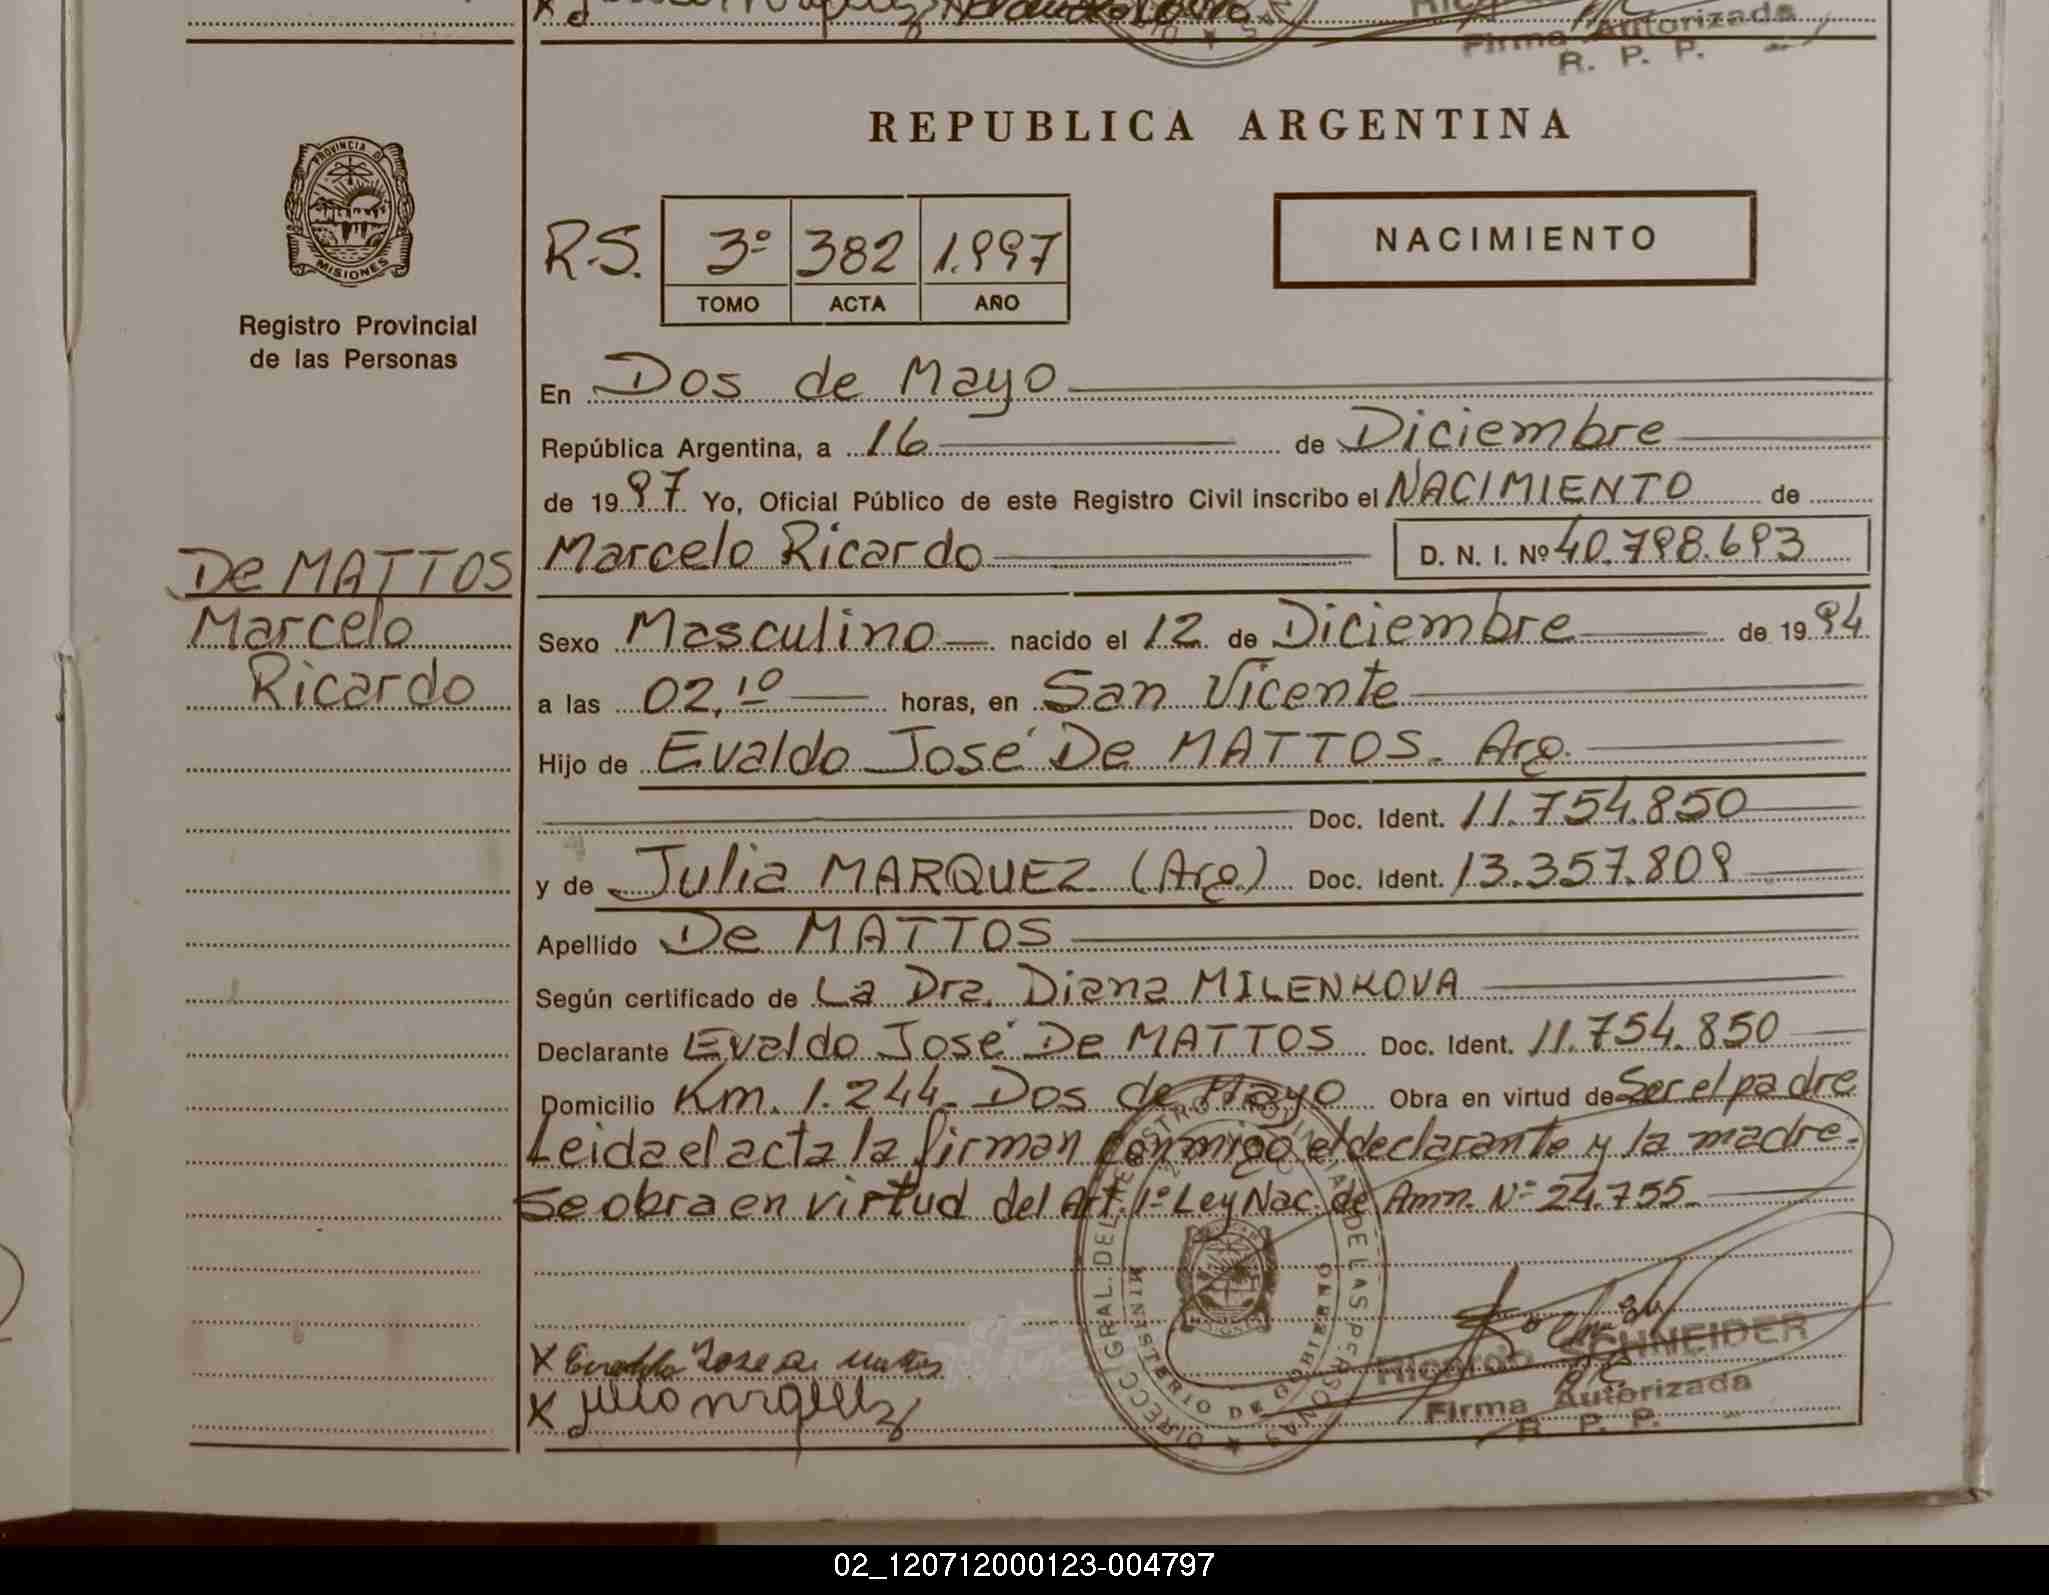 Firma Autorizada
R. P. P.
REPUBLICA ARGENTINA
PROVINCIA D
MISIONES
Registro Provincial
de las Personas
R.S. 3º 382 1.997
TOMO ACTA AÑO
NACIMIENTO
En Dos de Mayo
República Argentina, a 16 de Diciembre
de 1997 Yo, Oficial Público de este Registro Civil inscribo el NACIMIENTO de
De MATTOS
Marcelo
Ricardo
Marcelo Ricardo D. N. I. Nº 40.798.693
Sexo Masculino nacido el 12 de Diciembre de 1994
a las 02,10 horas, en San Vicente
Hijo de Evaldo José De MATTOS. Arg.
Doc. Ident. 11.754.850
y de Julia MARQUEZ (Arg.) Doc. Ident. 13.357.809
Apellido De MATTOS
Según certificado de La Dra. Diana MILENKOVA
Declarante Evaldo José De MATTOS Doc. Ident. 11.754.850
Domicilio Km. 1.244. Dos de Mayo Obra en virtud de Ser el padre
Leida el acta la firman conmigo el declarante y la madre.
Se obra en virtud del Art. 1º Ley Nac. de Amn. Nº 24.755.
DIRECC. GRAL. DEL REGISTRO PROVINCIAL DE LAS PERSONAS
MINISTERIO DE GOBIERNO
Ricardo SCHNEIDER
Firma Autorizada
R. P. P.
X Jose
X
02_120712000123-004797